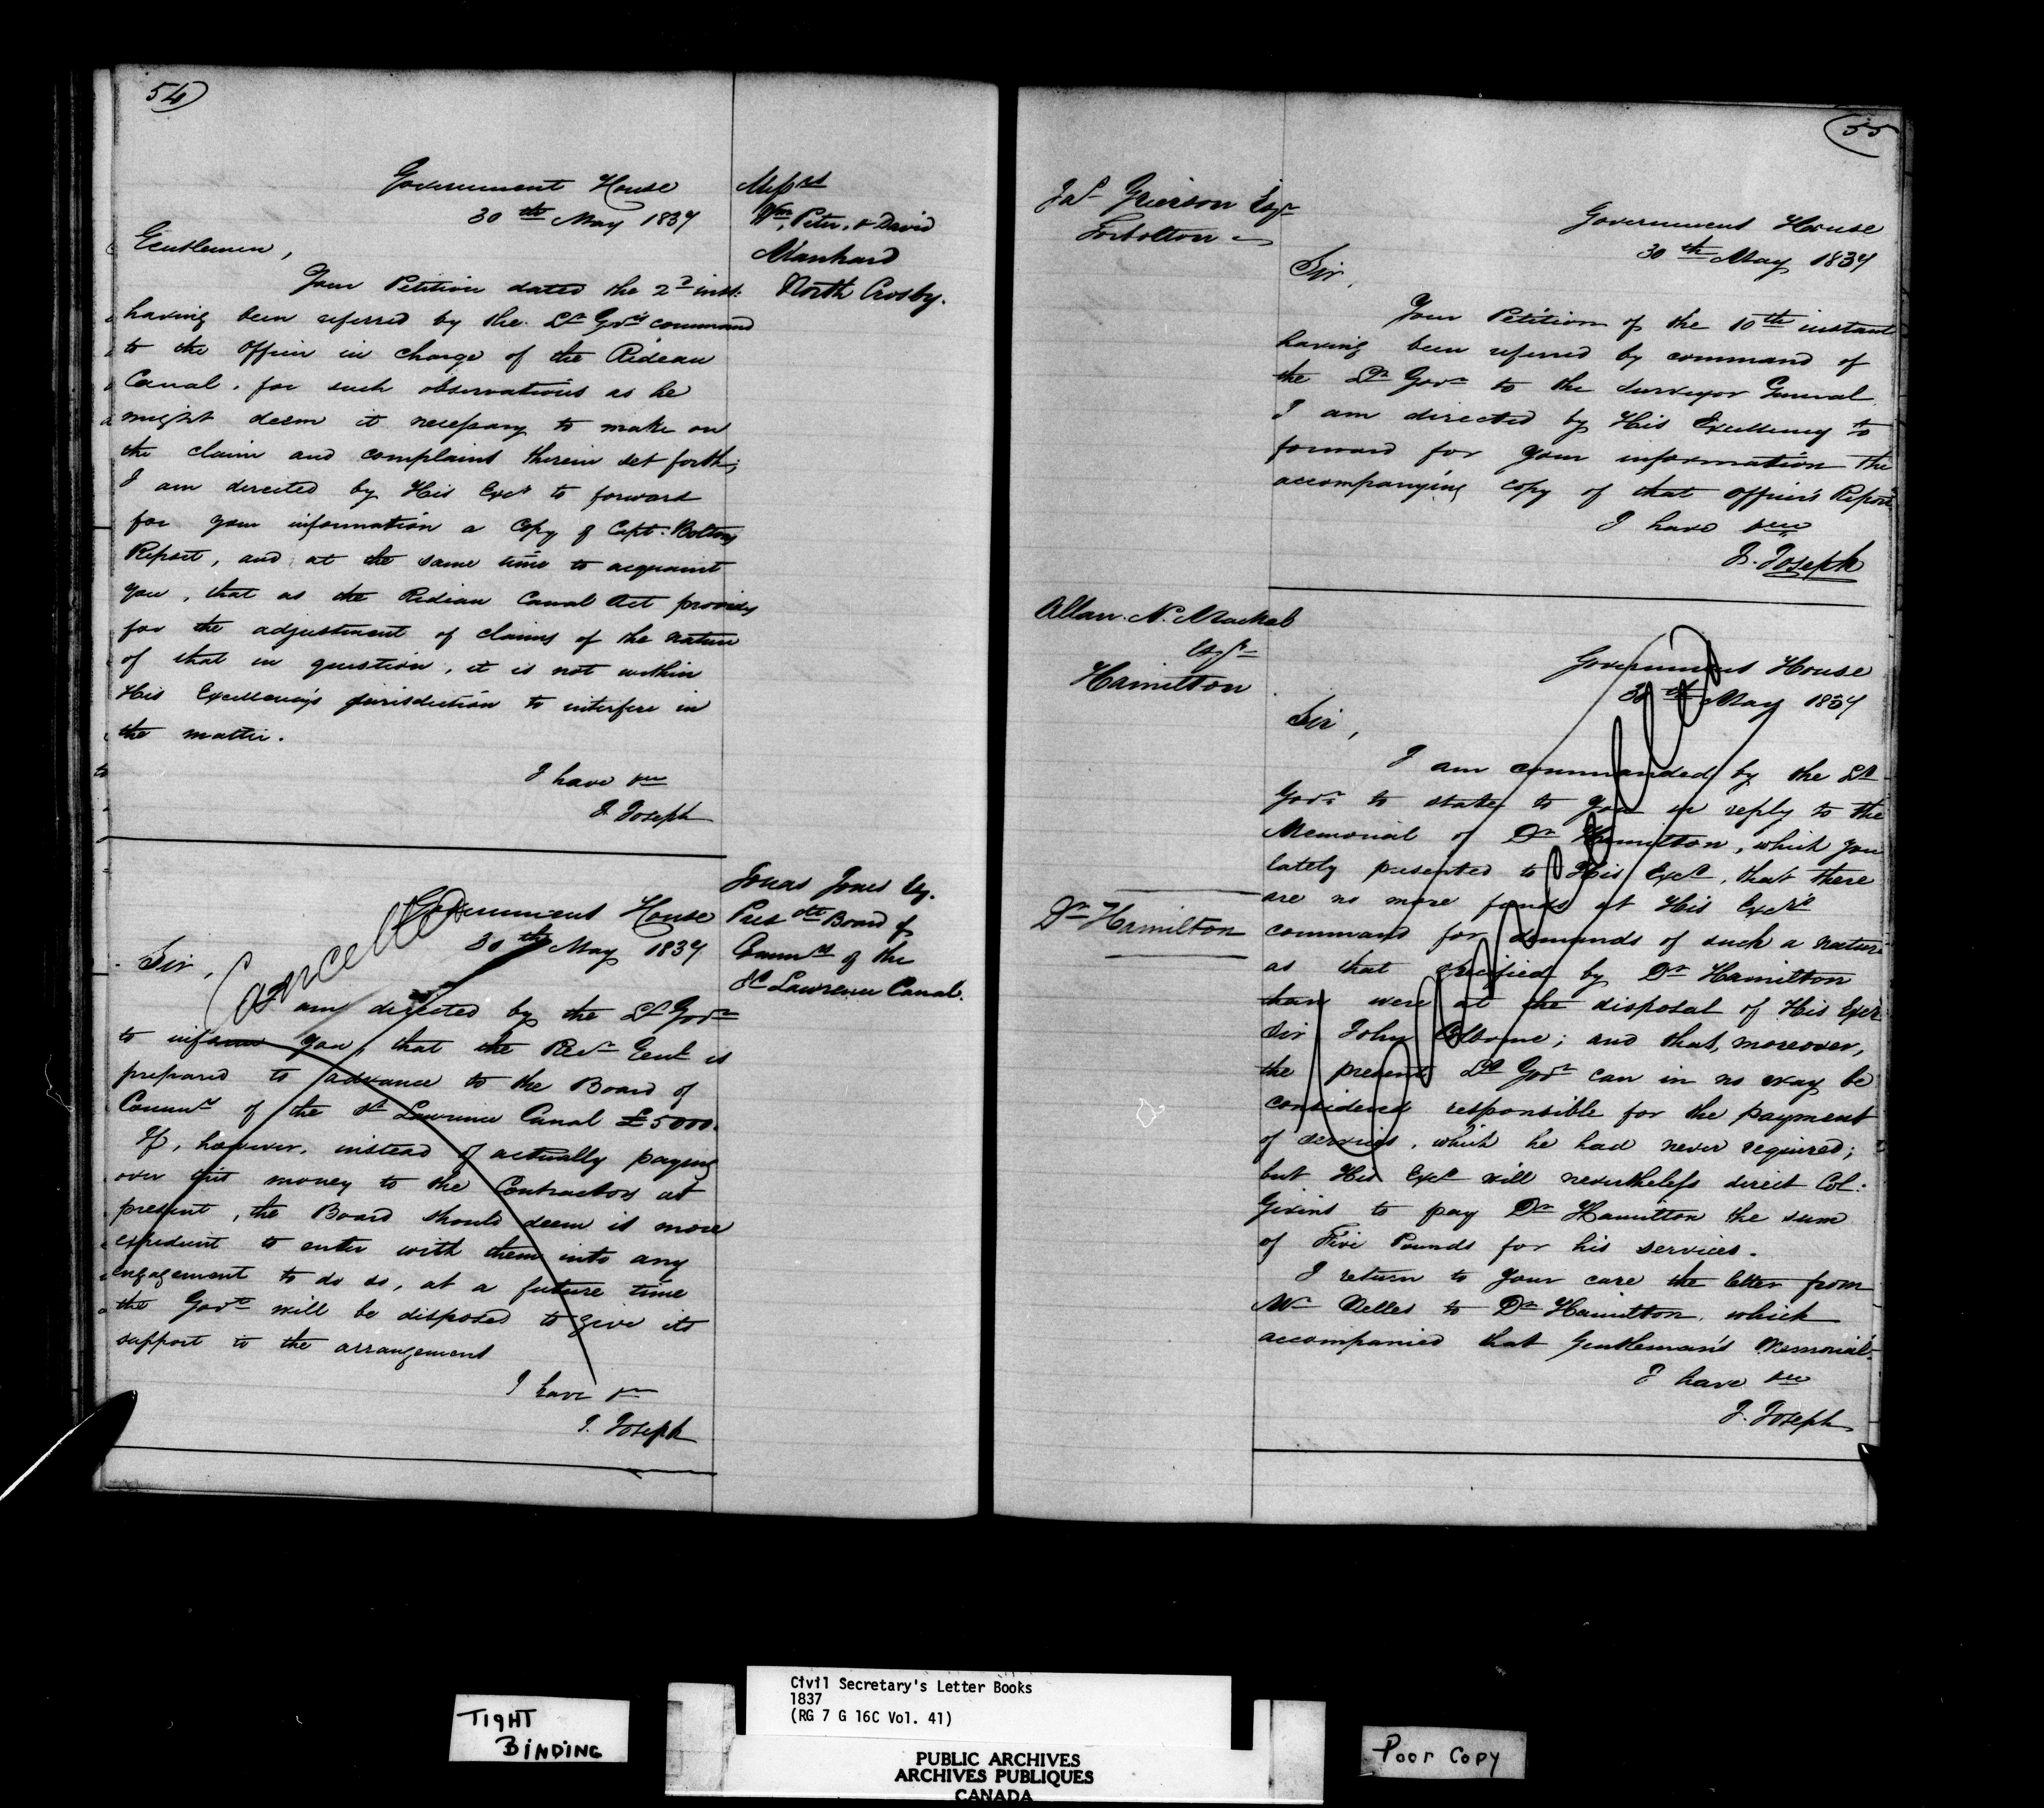 54
Government House
30th May 1837
Messrs
Wm, Peter, & David
Manhard
North Crosby.
Gentlemen,
Your Petition dated the 2d inst:
having been referred by the Lt Govr's command
to the Officer in charge of the Rideau
Canal, for such observations as he
might deem it necessary to make on
the claim and complaint therein set forth;
I am directed by His Excy to forward
for your information a Copy of Capt: Bolton's
Report, and at the same time to acquaint
you, that as the Rideau Canal Act provides
for the adjustment of claims of the nature
of that in question, it is not within
His Excellency's jurisdiction to interfere in
the matter.
I have &c
J. Joseph
Jonas Jones Esq.
Presdt Board of
Commrs of the
St Lawrence Canal.
Cancelled
Government House
30th May 1837
Sir,
I am directed by the Lt Govr
to inform you, that the Recr Genl is
prepared to advance to the Board of
Commrs of the St Lawrence Canal £5000.
If, however, instead of actually paying
over this money to the Contractors at
present, the Board should deem it more
expedient to enter with them into any
engagement to do so, at a future time
the Govt will be disposed to give its
support to the arrangement
I have &c
J. Joseph
55
Jas Grierson Esqr
Torbolton
Government House
30th May 1837
Sir,
Your Petition of the 10th instant
having been referred by command of
the Lt Govr to the Surveyor General
I am directed by His Excellency to
forward for your information the
accompanying copy of that Officer's Report
I have &c
J. Joseph
Allan. N. Macnab
Esqr
Hamilton
Dr Hamilton
Cancelled
Government House
30th May 1837
Sir,
I am commanded by the Lt
Govr to state to you in reply to the
Memorial of Dr Hamilton, which you
lately presented to His Excy, that there
are no more funds at His Excy's
command for demands of such a nature
as that specified by Dr Hamilton
than were at the disposal of His Excy
Sir John Colborne; and that, moreover,
the present Lt Govr can in no way be
considered responsible for the payment
of services, which he had never required;
but His Excy will nevertheless direct Col:
Givins to pay Dr Hamilton the sum
of Five Pounds for his services.
I return to your care the letter from
Mr Nelles to Dr Hamilton, which
accompanied that Gentleman's Memorial.
I have &c
J. Joseph
TIGHT
BINDING
Civil Secretary's Letter Books
1837
(RG 7 G 16C Vol. 41)
PUBLIC ARCHIVES
ARCHIVES PUBLIQUES
CANADA
Poor Copy